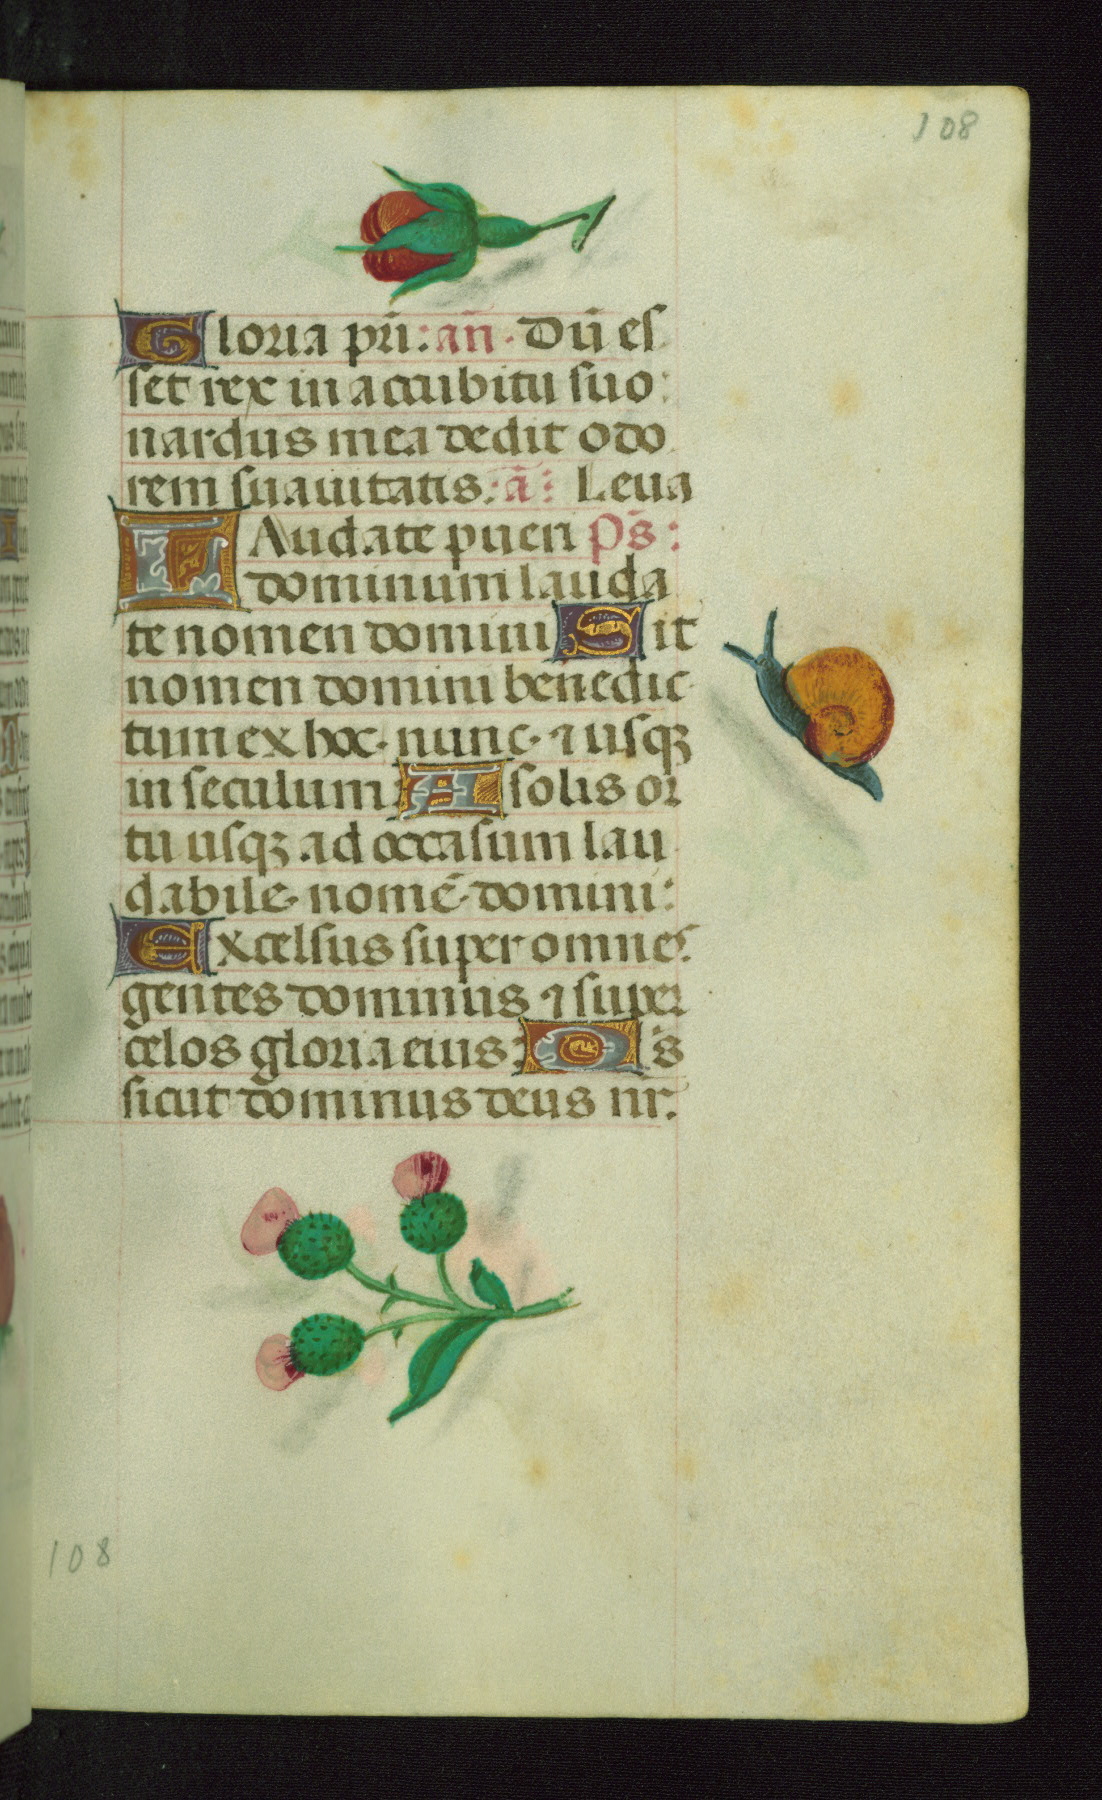 108
Gloria pr̄i: an̄. Dū es
set rex in accubitu suo:
nardus mea dedit odo
rem suauitatis. ā: Leua
LAudate pueri Ps̄:
dominum lauda
te nomen domini Sit
nomen domini benedic
tum ex hoc nunc ⁊ usqꝫ
in seculum A solis or
tu usqꝫ ad occasum lau
dabile nomē domini:
Excelsus super omnes
gentes dominus ⁊ super
celos gloria eius: Q's
sicut dominus deus nr̄.
108